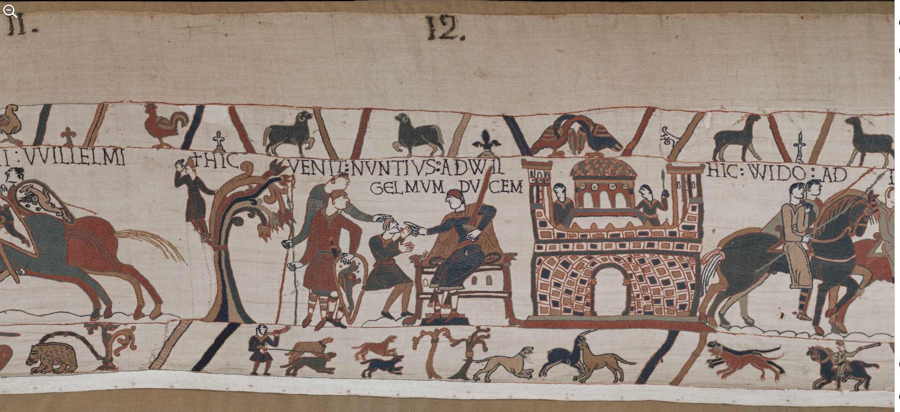 11.
12.
I: VVILLELMI
† HIC
VENIT: NVNTIVS: AD WIL
GELMVM DVCEM
HIC: WIDO: AD